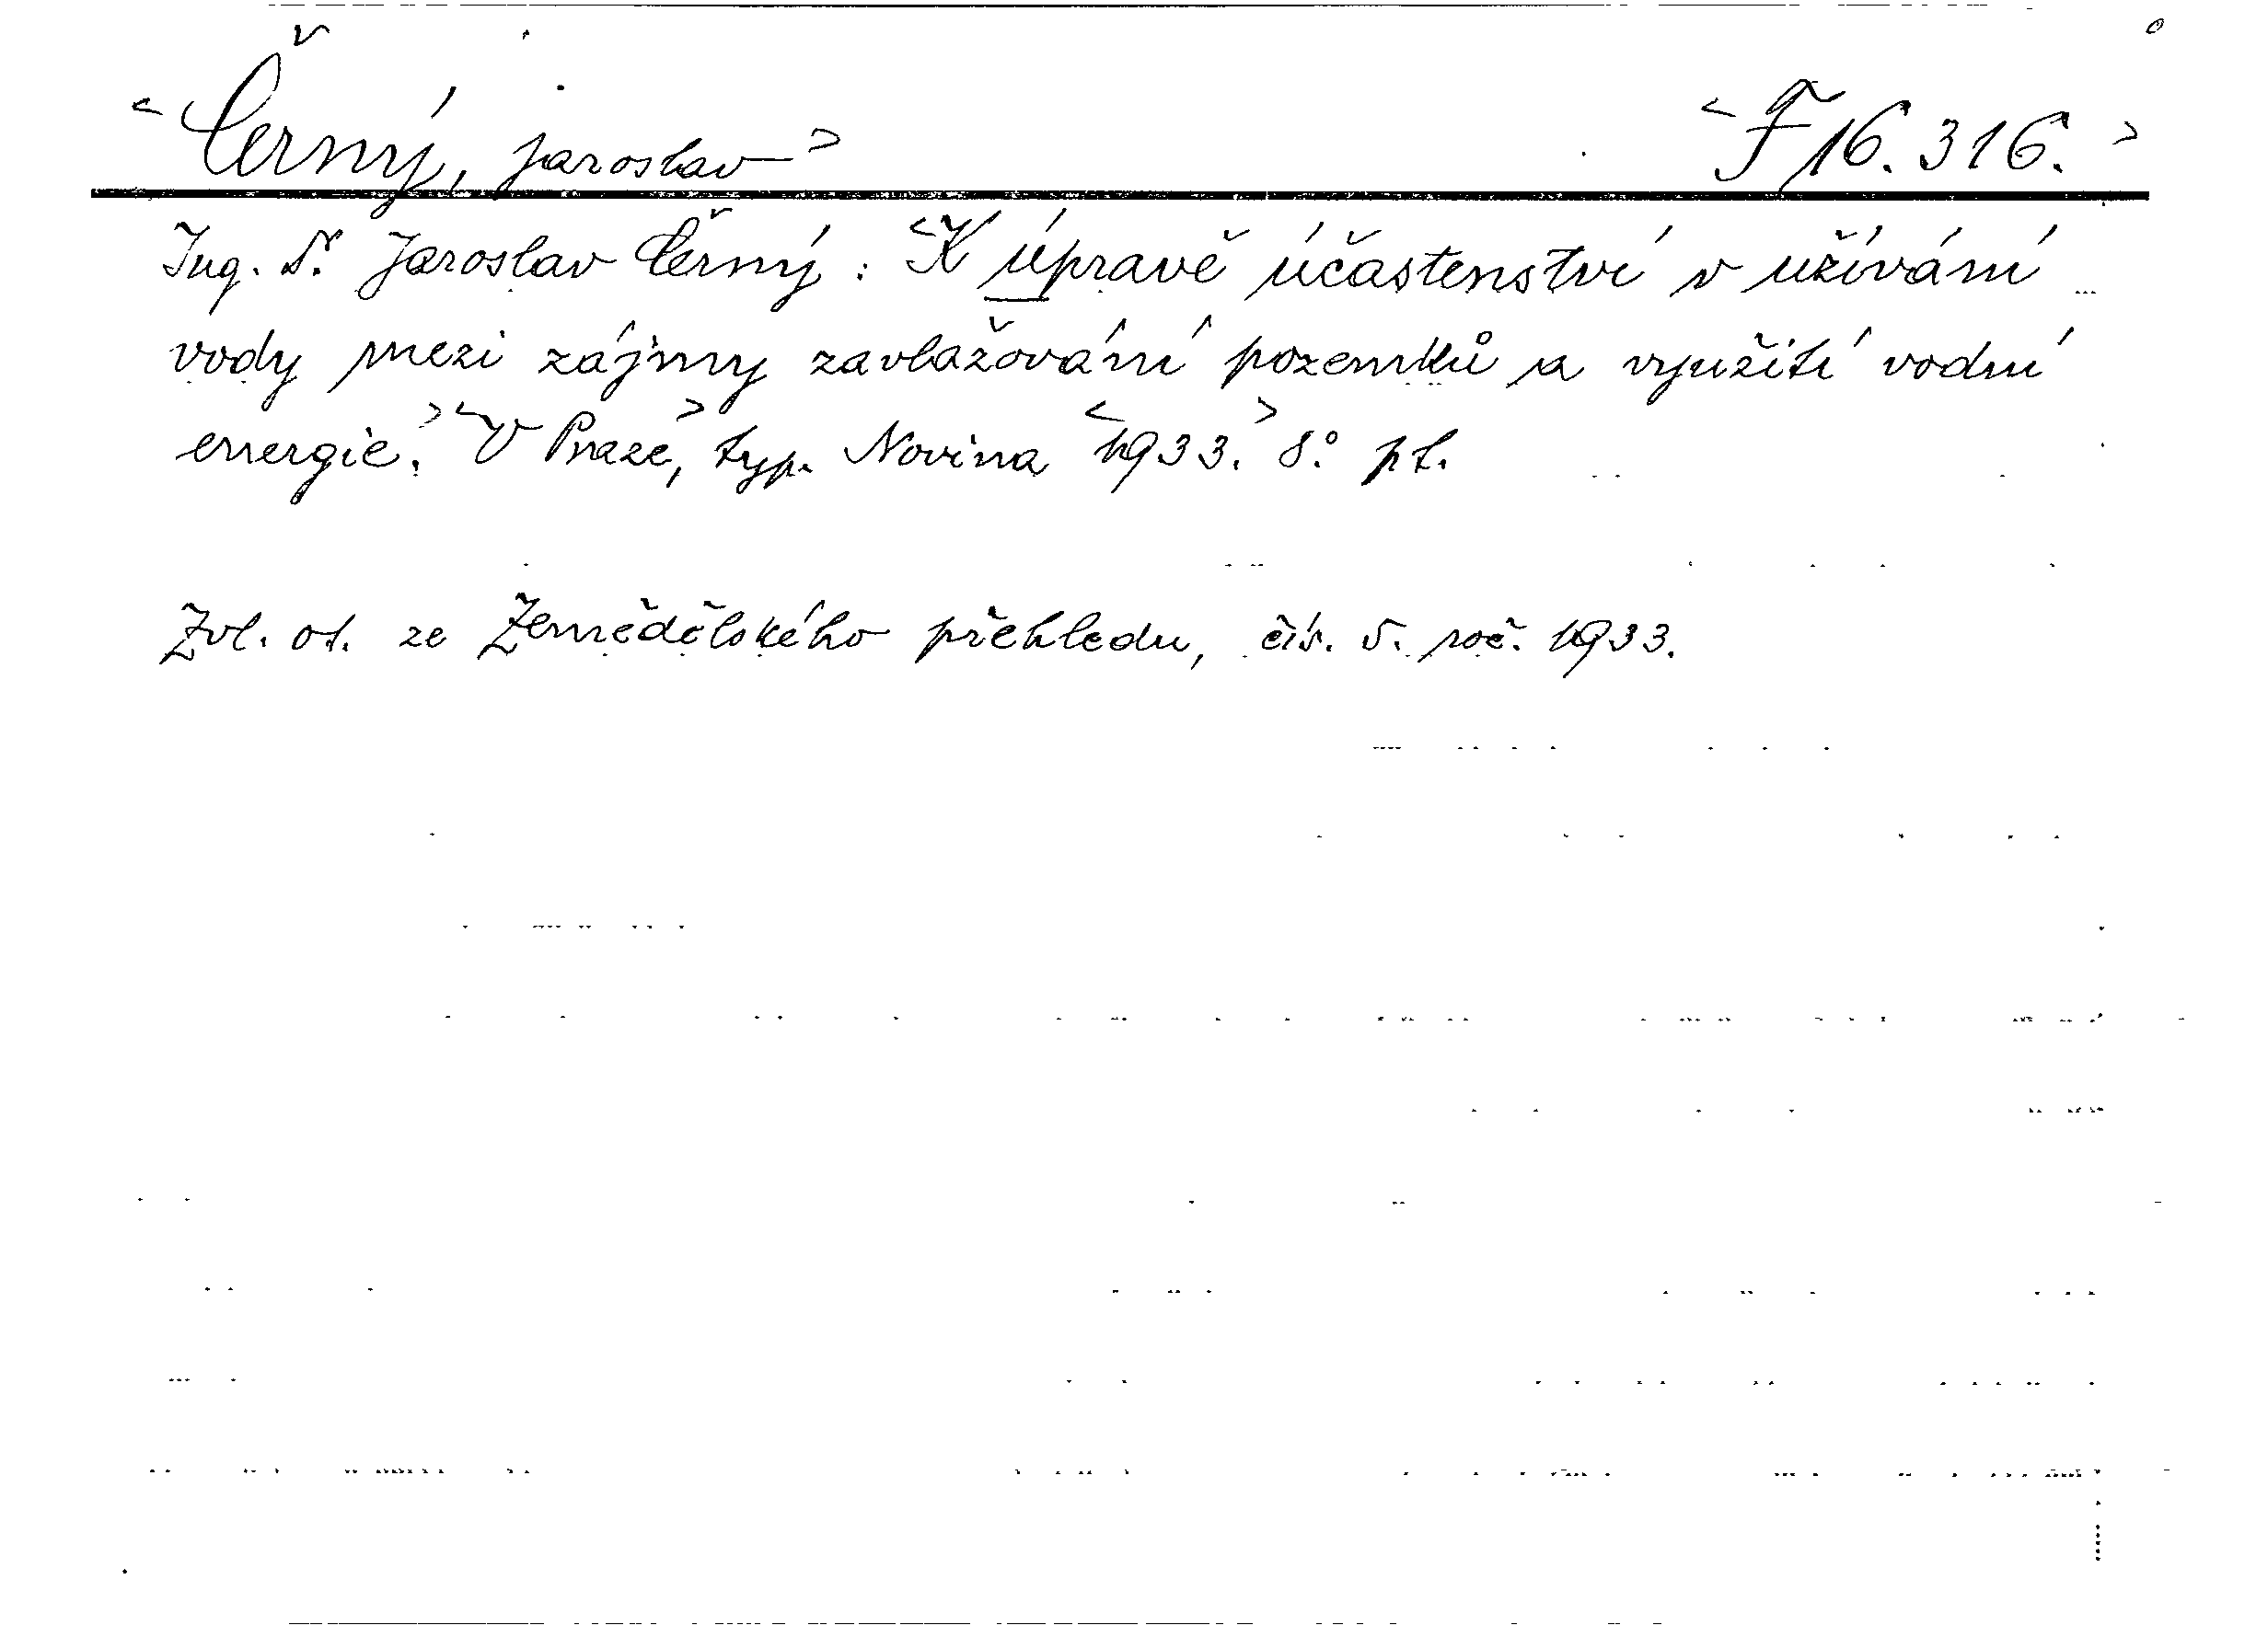 <Černý, Jaroslav> <F 16.316.>
Ing. Dr. Jaroslav Černý: <K úpravě účastenství v užívání
vody mezi zájmy zavlažování pozemků a využití vodní
energie.> <V Praze,> typ. Novina <1933.> 8.° pt.
Zvl. ot. ze Zemědělského přehledu, čís. 5. roč. 1933.